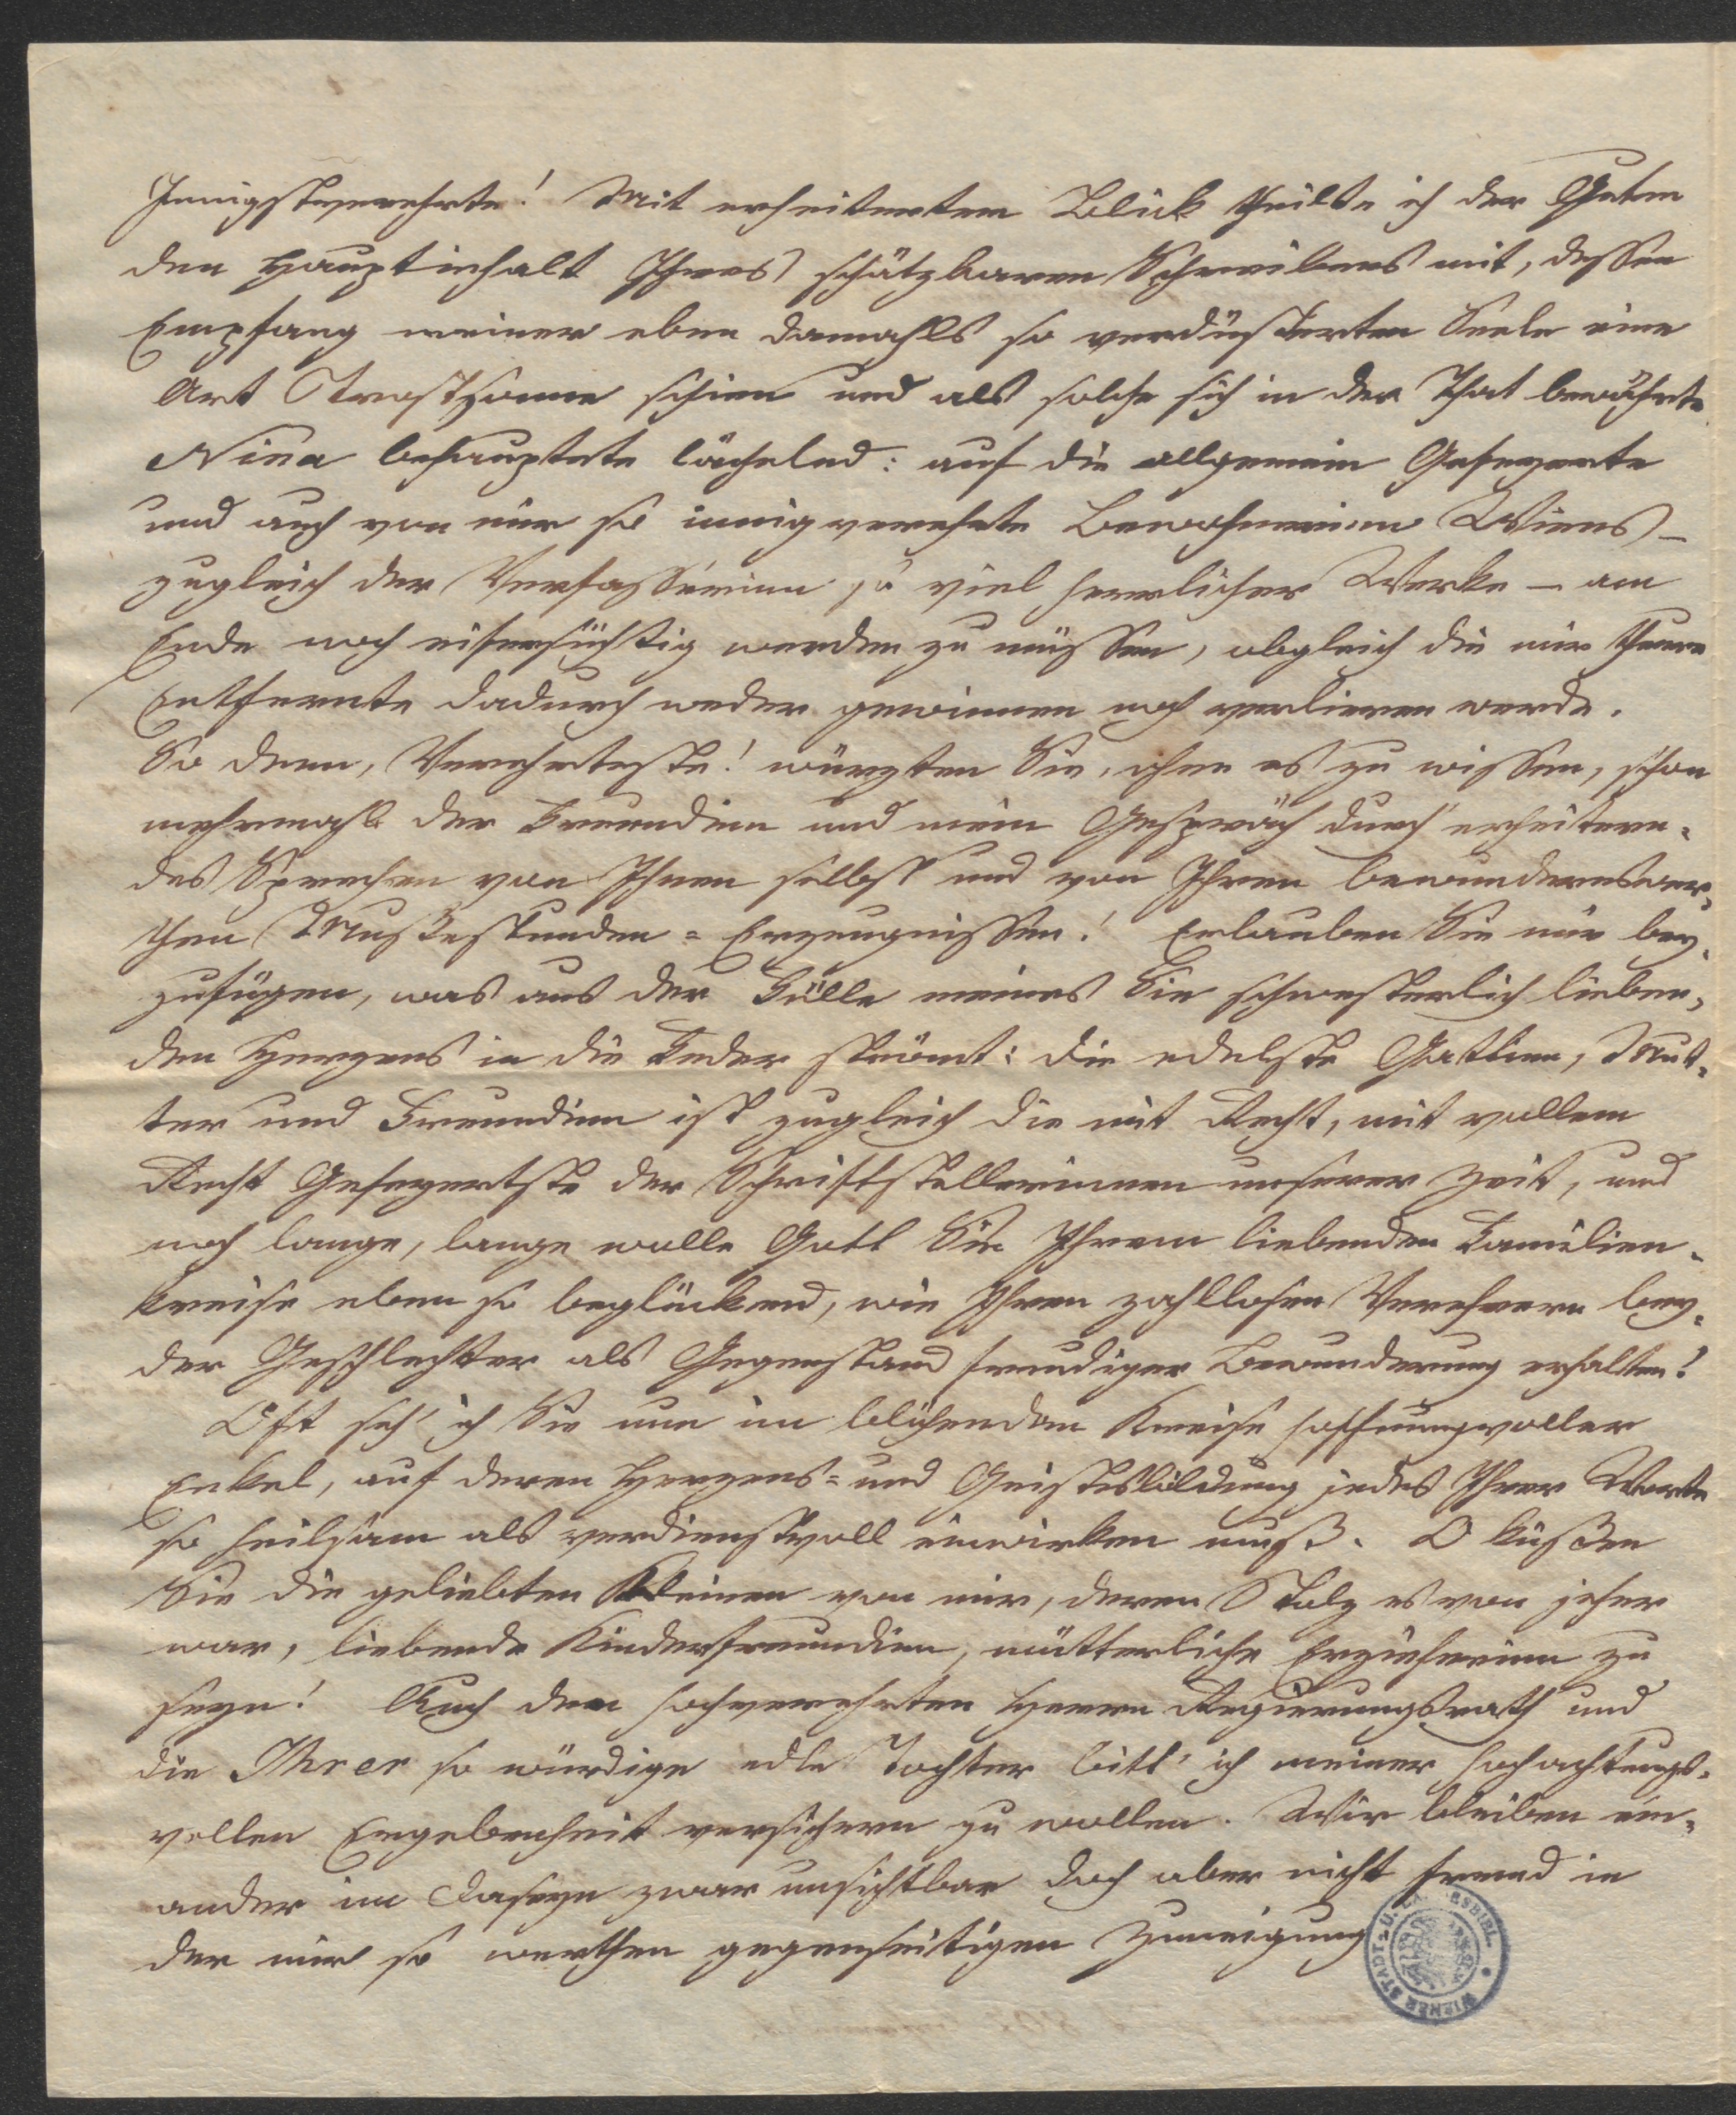 Innigstverehrte! Mit erheitertem Blick theilte ich der Guten
den Hauptinhalt Ihres schätzbaren Schreibens mit, dessen
Empfang meiner eben damahls so verdüsterten Seele eine
Art Trostsonne schien und als solche sich in der That bewährte.
Nina behauptete lächelnd: auf die allgemein Gefeyerte
und auch von mir so innigverehrte Bewohnerinn Wiens –
zugleich der Verfasserinn so viel herrlicher Werke – am
Ende noch eifersüchtig werden zu müssen, obgleich die mir theure
Entfernte dadurch weder gewinnen noch verlieren werde.
So denn, Verehrteste! würzten Sie, ohne es zu wissen, schon
mehrmahls der Freundinn und mein Gespräch durch erheitern-
des Sprechen von Ihnen selbst und von Ihren bewundernswer-
then Mußestunden-Erzeugnissen! Erlauben Sie mir bey-
zufügen, was aus der Fülle meines Sie schwesterlich lieben-
den Herzens in die Feder strömt: die edelste Gattinn, Mut-
ter und Freundinn ist zugleich die mit Recht, mit vollem
Recht Gefeyertste der Schriftstellerinnen unserer Zeit, und
noch lange, lange wolle Gott Sie Ihrem liebenden Familien-
kreise eben so beglückend, wie Ihren zahllosen Verehrern bey-
der Geschlechter als Gegenstand freudiger Bewunderung erhalten!
Oft seh' ich Sie nun im blühenden Kreise hoffnungsvoller
Enkel, auf deren Herzens- und Geistesbildung jedes Ihrer Worte
so heilsam als verdienstvoll einwirken muß. O küßen
Sie die geliebten Kleinen von mir, deren Stolz es von jeher
war, liebende Kinderfreundinn, mütterliche Erzieherinn zu
seyn! Auch dem hochverehrten Herrn Regierungsrath und
die Ihrer so würdige edle Tochter bitt' ich meiner hochachtungs-
vollen Ergebenheit versichern zu wollen. Wir bleiben ein-
ander im Daseyn zwar unsichtbar doch aber nicht fremd in
der mir so werthen gegenseitigen Zuneigung
WIENER STADT- U. LANDESBIBL.